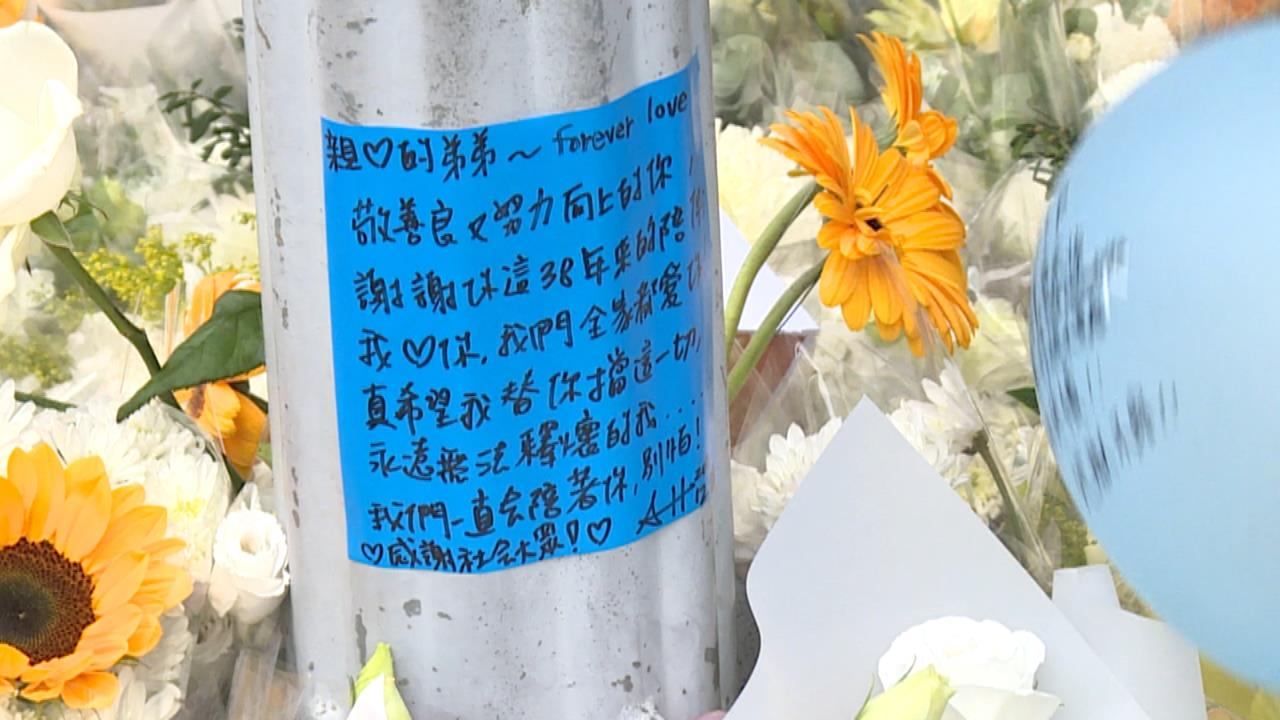 親♡的弟弟~ forever love
敬善良又努力向上的你,
謝謝你這38年來的陪伴
我♡你,我們全家都愛你
真希望我替你擋這一切,
永遠無法釋懷的我....
我們一直会陪著你,別怕!
♡感謝社会大眾!♡